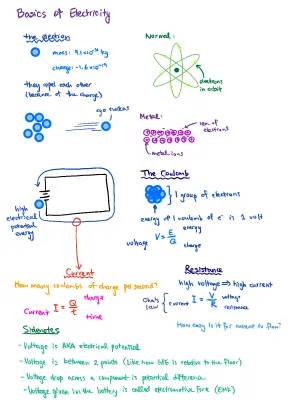 Basics of Electricity
the electron
mass: 9.1×10⁻³¹ kg
charge: -1.6×10⁻¹⁹
they repel each other
(because of the charge)
Normal:
electrons
in orbit
Metal:
sea of
electrons
metal ions
high
electrical
potential
energy
The Coulomb
1 group of electrons
energy of 1 coulomb of e⁻ is 1 volt
energy
voltage V = E/Q
charge
Current
How many coulombs of charge per second?
charge
Current I = Q/t
time
Resistance
high voltage ⇒ high current
Ohm's
Law
current I = V/R voltage
resistance
How easy is it for current to flow?
Sidenotes
- Voltage is AKA electrical potential
- Voltage is between 2 points (Like how GPE is relative to the floor)
- Voltage drop across a component is potential difference
- Voltage given in the battery is called electromotive force (EMF)